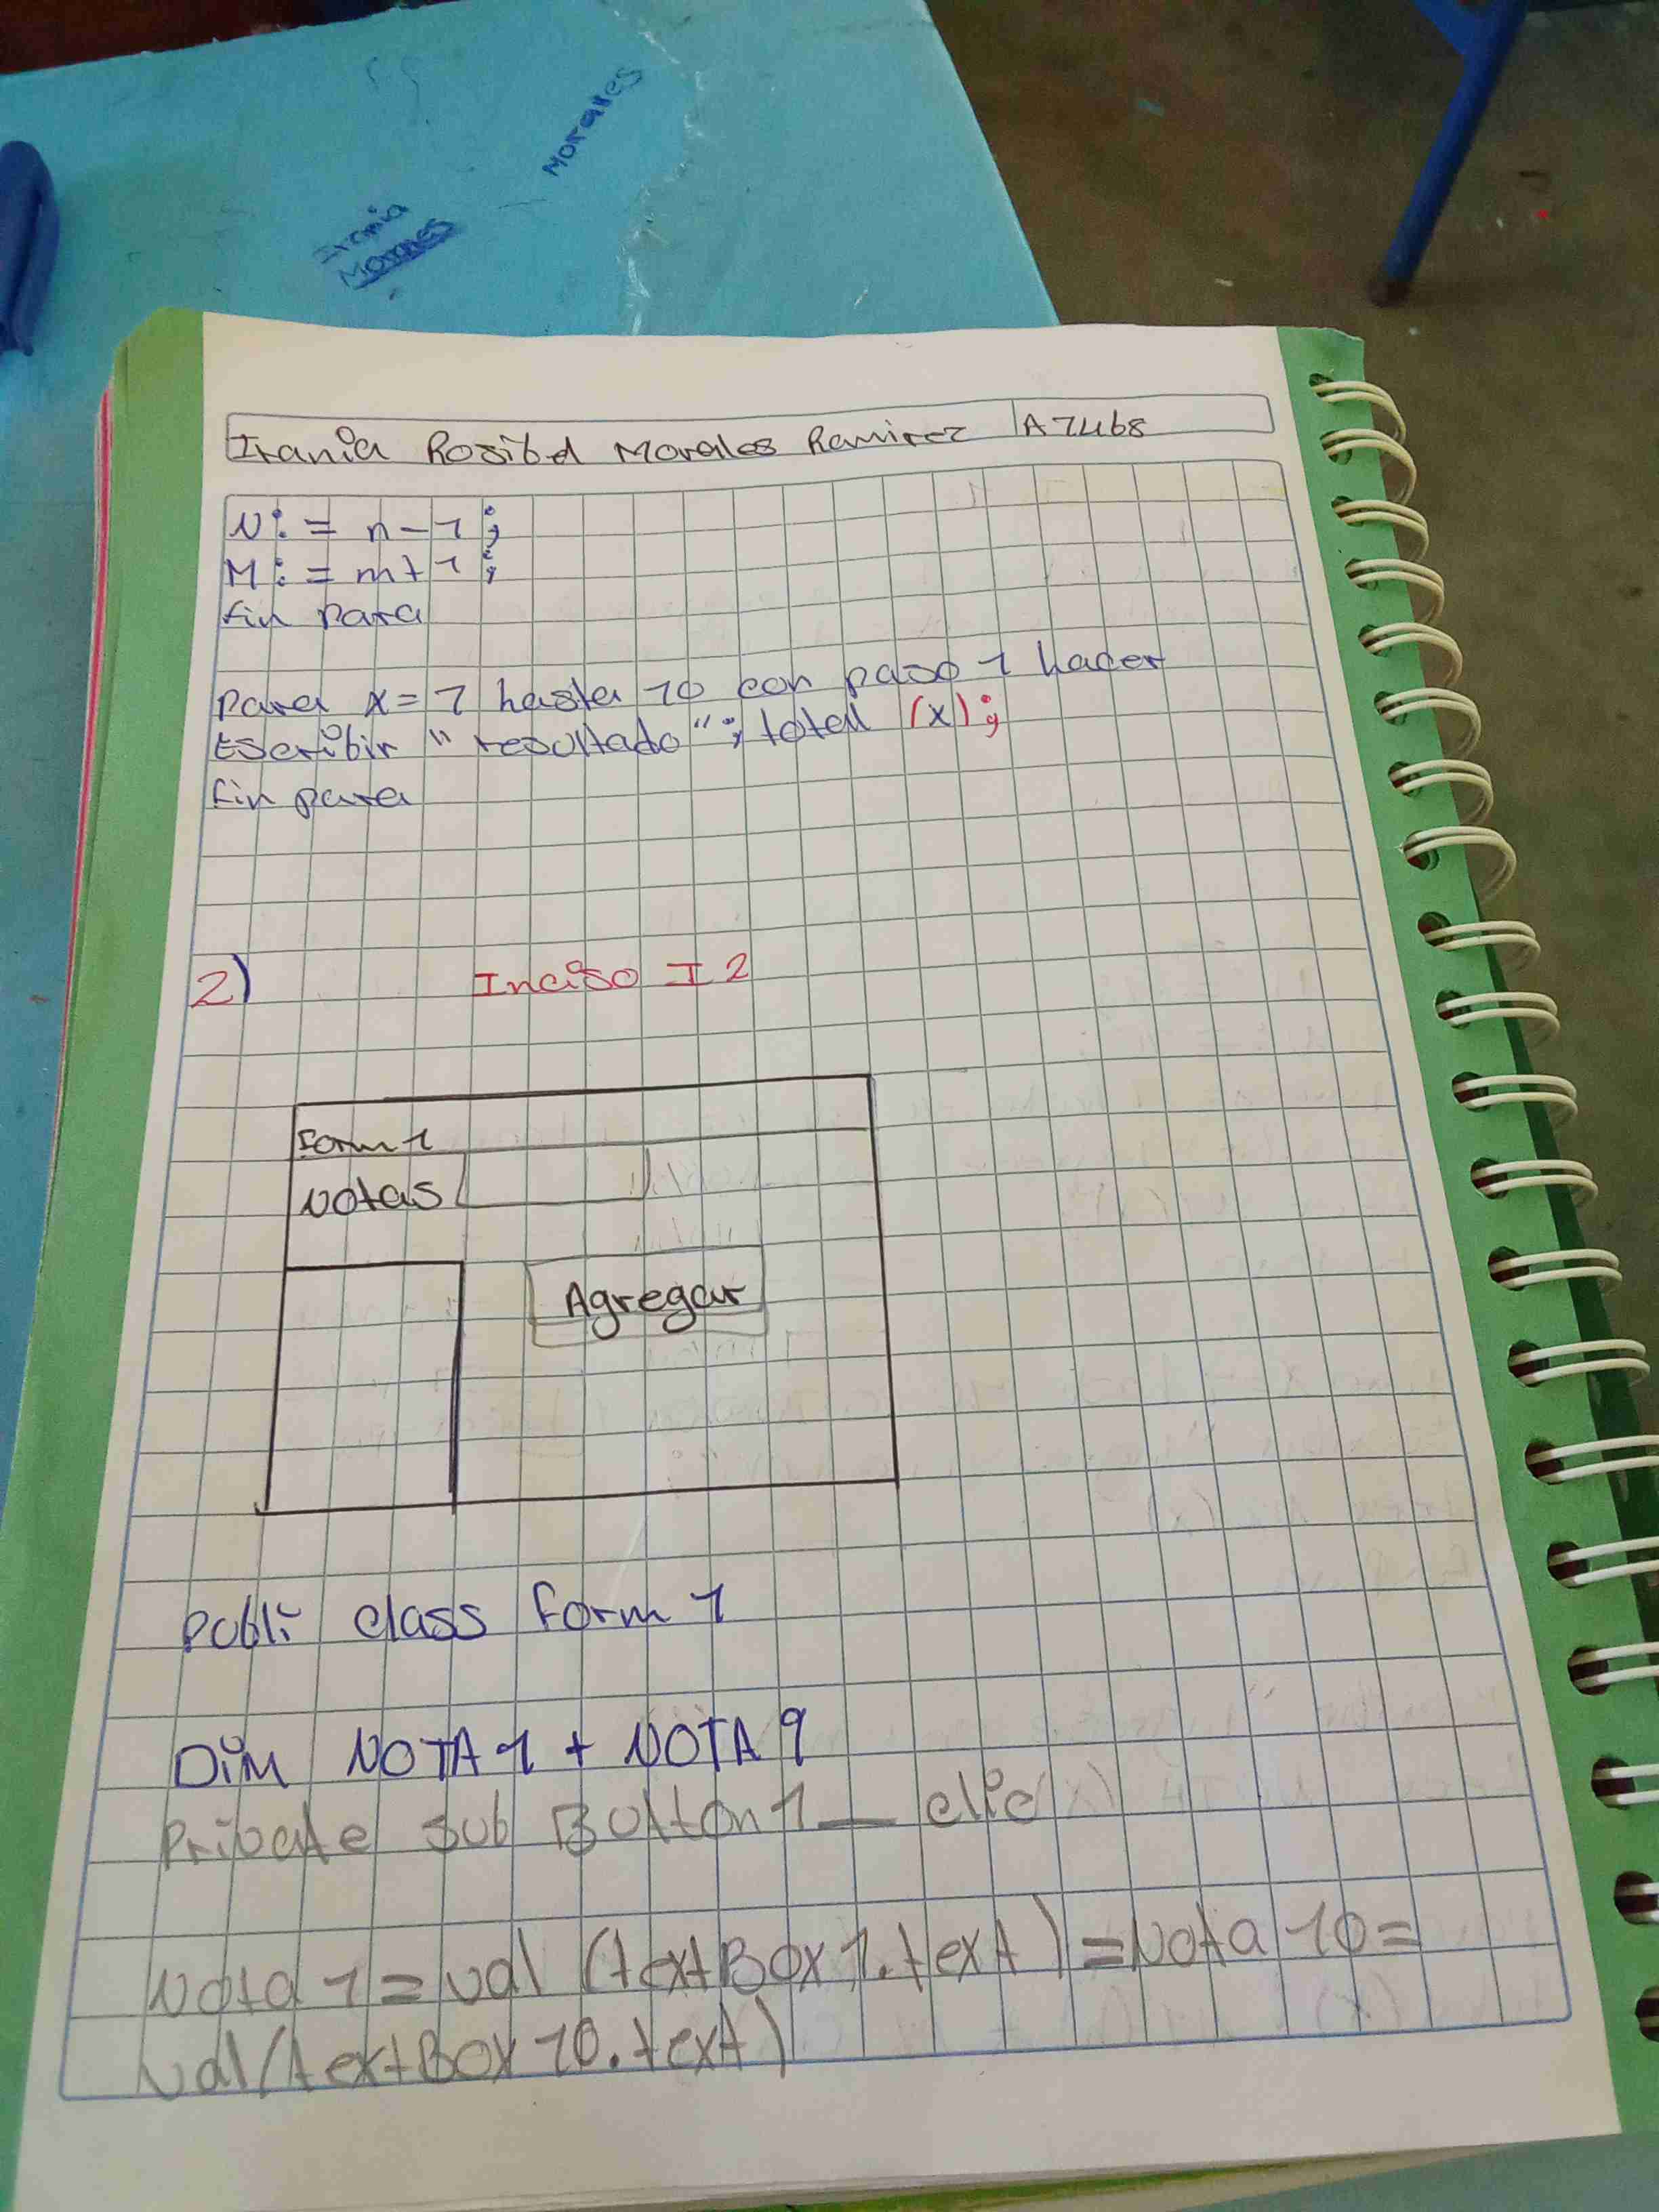 Morales
Irania
Morales
Irania Rosibel Morales Ramirez A7468
N:= n-1;
M:= m+1;
fin para
para x=1 hasta 10 con paso 1 hacer
Escribir "resultado"; total (x);
fin para
2) Inciso I 2
Form 1
Notas
Agregar
Publi class form 1
Dim NOTA 1 + NOTA 9
Private sub Button 1_ clic
Nota 1 = val (textBox 1.text) = Nota 10 =
val (textBox 10.text)